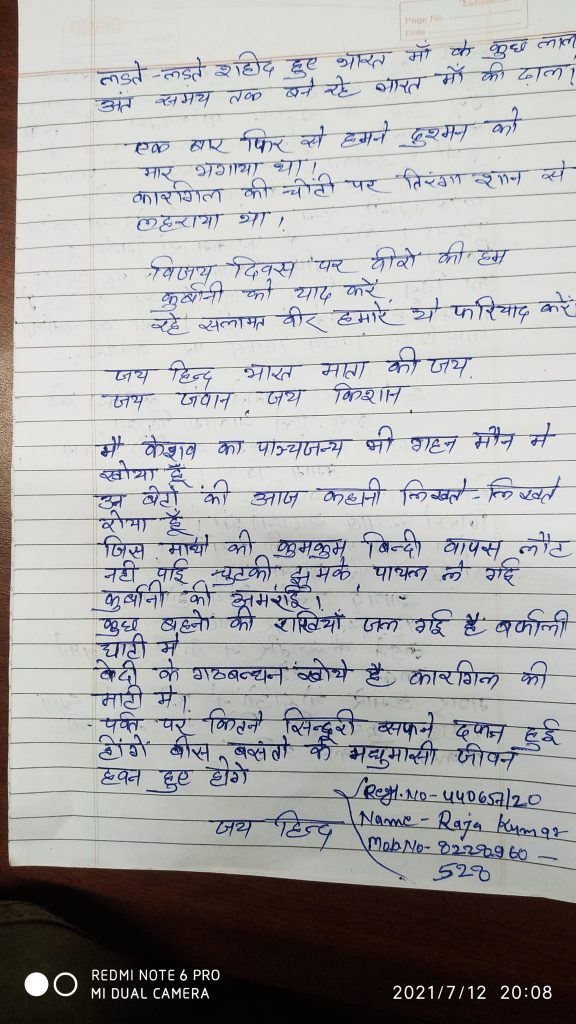 Page No.
Date
लडते-लडते शहीद हुए भारत माँ के कुछ लाल
अंत समय तक बने रहे भारत माँ की ढाल।
एक बार फिर से हमने दुश्मन को
मार भगाया था।
कारगिल की चोटी पर तिरंगा शान से
लहराया था।
विजय दिवस पर वीरो की हम
कुर्बानी को याद करें,
रहे सलामत वीर हमारे, ये फरियाद करें
जय हिन्द भारत माता की जय,
जय जवान जय किशान
मै केशव का पाञ्चजन्य भी गहन मौन मे
खोया हूँ,
उन बेटो की आज कहानी लिखते-लिखते
रोया हूँ
जिस माथे की कुमकुम बिन्दी वापस लौट
नही पाई चुटकी, झुमके, पायल ले गई
कुर्बानी की अमराई।
कुछ बहनो की राखियाँ जल गई है बर्फीली
घाटी मे
वेदी के गठबन्धन खोये है कारगिल की
माटी मे।
पर्वत पर कितने सिन्दूरी सपने दफन हुई
होंगे बीस बसंतो के मधुमासी जीवन
हवन हुए होगे
जय हिन्द
Regt.No-440657/20
Name- Raja Kumar
Mob No- 82228960-
528
REDMI NOTE 6 PRO
MI DUAL CAMERA
2021/7/12 20:08